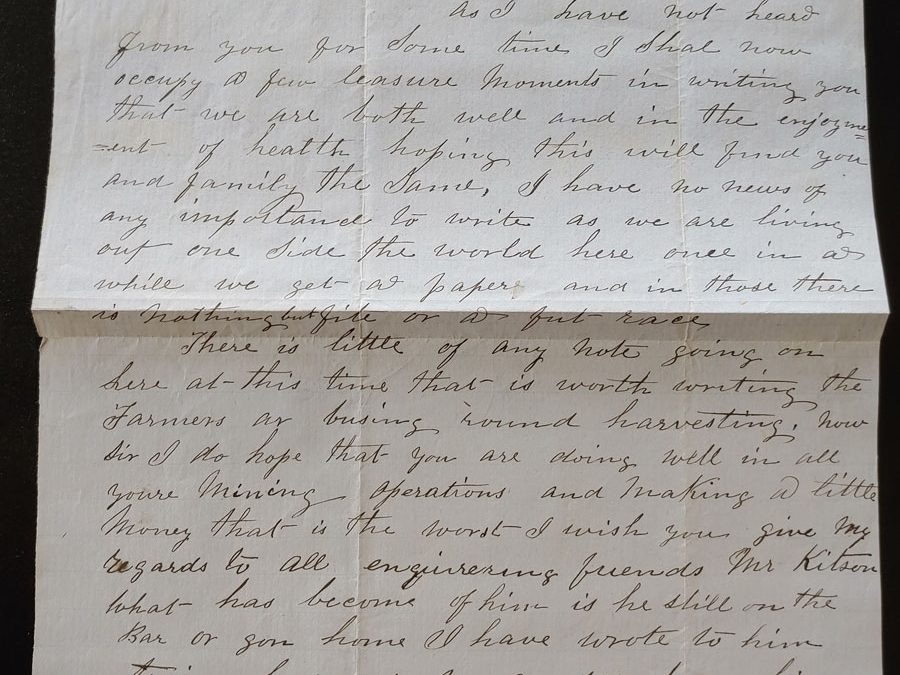 as I have not heard
from you for some time I shal now
occupy a few leasure moments in writing you
that we are both well and in the enjoyme=
=ent of health hoping this will find you
and family the same, I have no news of
any importance to write as we are living
out one side the world here once in a
while we get a paper and in those there
is nothing but file or a fut race
There is little of any note going on
here at this time that is worth writing the
Farmers ar busing round harvesting. now
sir I do hope that you are doing well in all
youre Mining operations and making a little
Money that is the worst I wish you give my
regards to all enquireing friends Mr Kitson
what has become of him is he still on the
Bar or gon home I have wrote to him